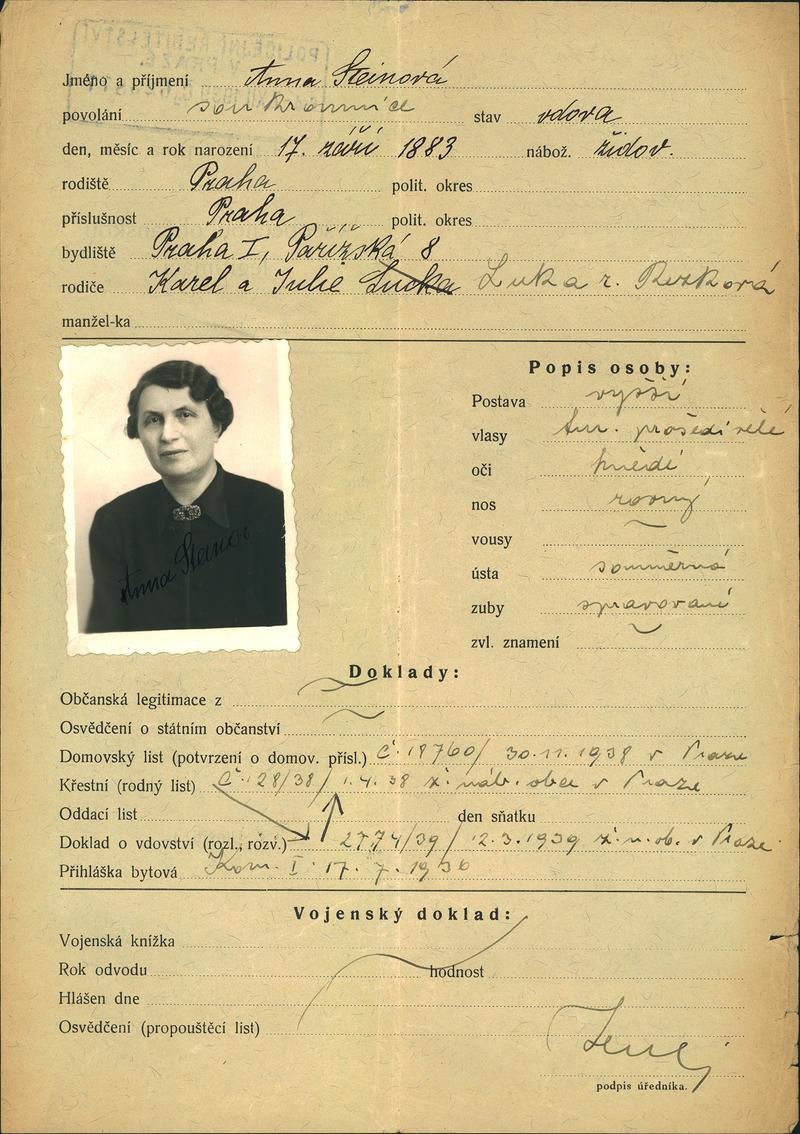 Jméno a příjmení Anna Steinová
povolání soukromnice stav vdova
den, měsíc a rok narození 17. září 1883 nábož. židov.
rodiště Praha polit. okres
příslušnost Praha polit. okres
bydliště Praha I, Pařížská 8
rodiče Karel a Julie Lucka Luka r.
manžel-ka
Popis osoby:
Postava vyšší
vlasy tm. prošedivělé
oči hnědé
nos rovný
vousy
ústa souměrná
zuby spravované
zvl. znamení
Anna Steinov
Doklady:
Občanská legitimace z
Osvědčení o státním občanství
Domovský list (potvrzení o domov. přísl.) č. 18760/ 30.11.1938 v Praze
Křestní (rodný list) č. 128/38/ 1.4.38 ž. náb. obce v Praze
Oddací list den sňatku
Doklad o vdovství (rozl., rozv.) 2774/39/ 12.3.1939 ž. n. ob. v Praze
Přihláška bytová Kom. I. 17.7.1936
Vojenský doklad:
Vojenská knížka
Rok odvodu hodnost
Hlášen dne
Osvědčení (propouštěcí list)
podpis úředníka.